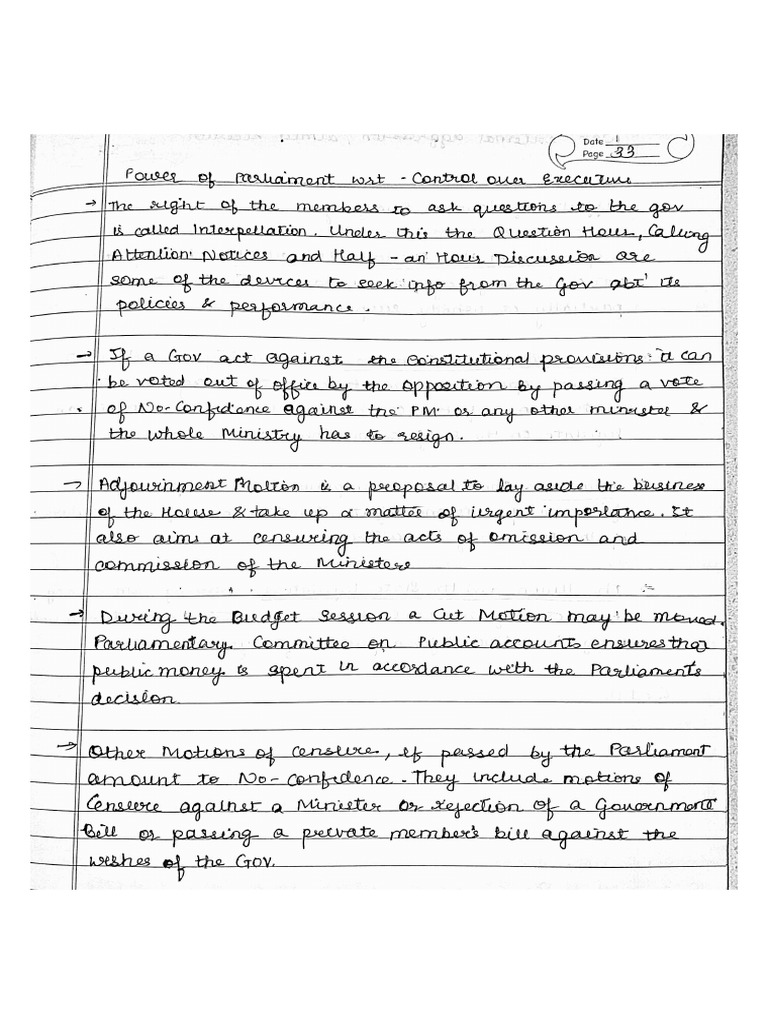 Date 1
Page 33
Power of Parliament wrt - Control over Executive
→ The right of the members to ask questions to the gov
is called Interpellation. Under this the Question Hour, Calling
Attention Notices and Half - an Hour Discussion are
some of the devices to seek info from the Gov abt its
policies & performance.
→ If a Gov act against the Constitutional provisions it can
be voted out of office by the opposition by passing a vote
of No-Confidance against the PM or any other minister &
the whole Ministry has to resign.
→ Adjournment Motion is a proposal to lay aside the business
of the House & take up a matter of urgent importance. It
also aims at censuring the acts of omission and
commission of the Ministers
→ During the Budget Session a Cut Motion may be moved.
Parliamentary Committee on Public accounts ensures that
public money is spent in accordance with the Parliaments
decision.
→ Other Motions of Censure, if passed by the Parliament
amount to No-confidence. They include motions of
Censure against a Minister or rejection of a Government
Bill or passing a private member's bill against the
wishes of the Gov.